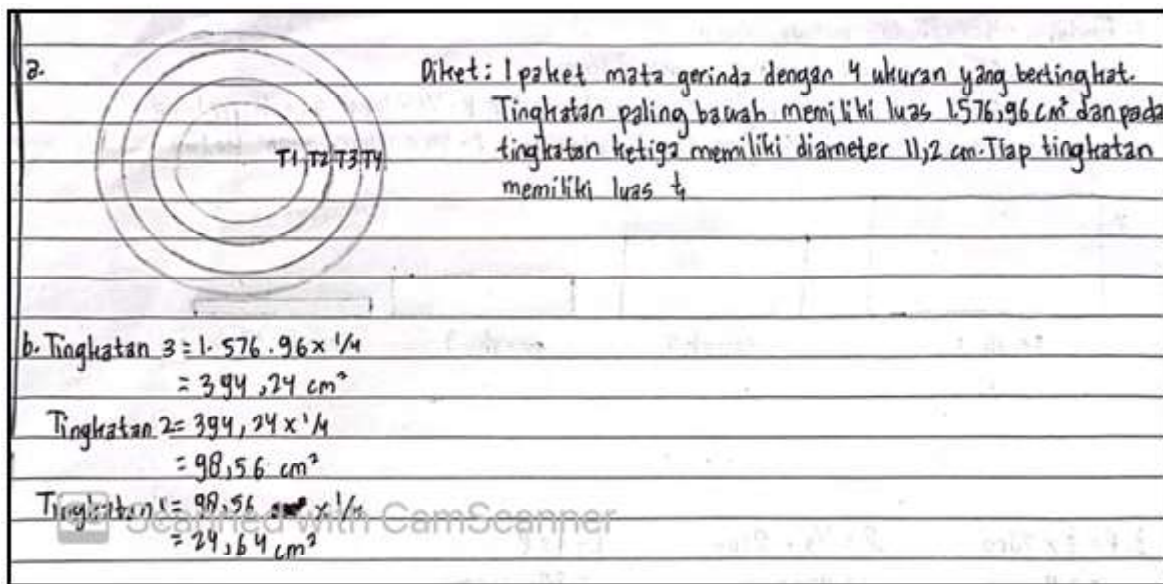 a.
T1 T2 T3 T4
Diket: 1 paket mata gerinda dengan 4 ukuran yang bertingkat.
Tingkatan paling bawah memiliki luas 1.576,96 cm² dan pada
tingkatan ketiga memiliki diameter 11,2 cm. Tiap tingkatan
memiliki luas ¼
b. Tingkatan 3 = 1.576.96 x 1/4
= 394,24 cm²
Tingkatan 2 = 394,24 x 1/4
= 98,56 cm²
Tingkatan 1 = 98,56 x 1/4
= 24,64 cm²
Scanned with CamScanner